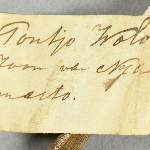 Pontjo Wolo
Zoon van Nga
maeto.